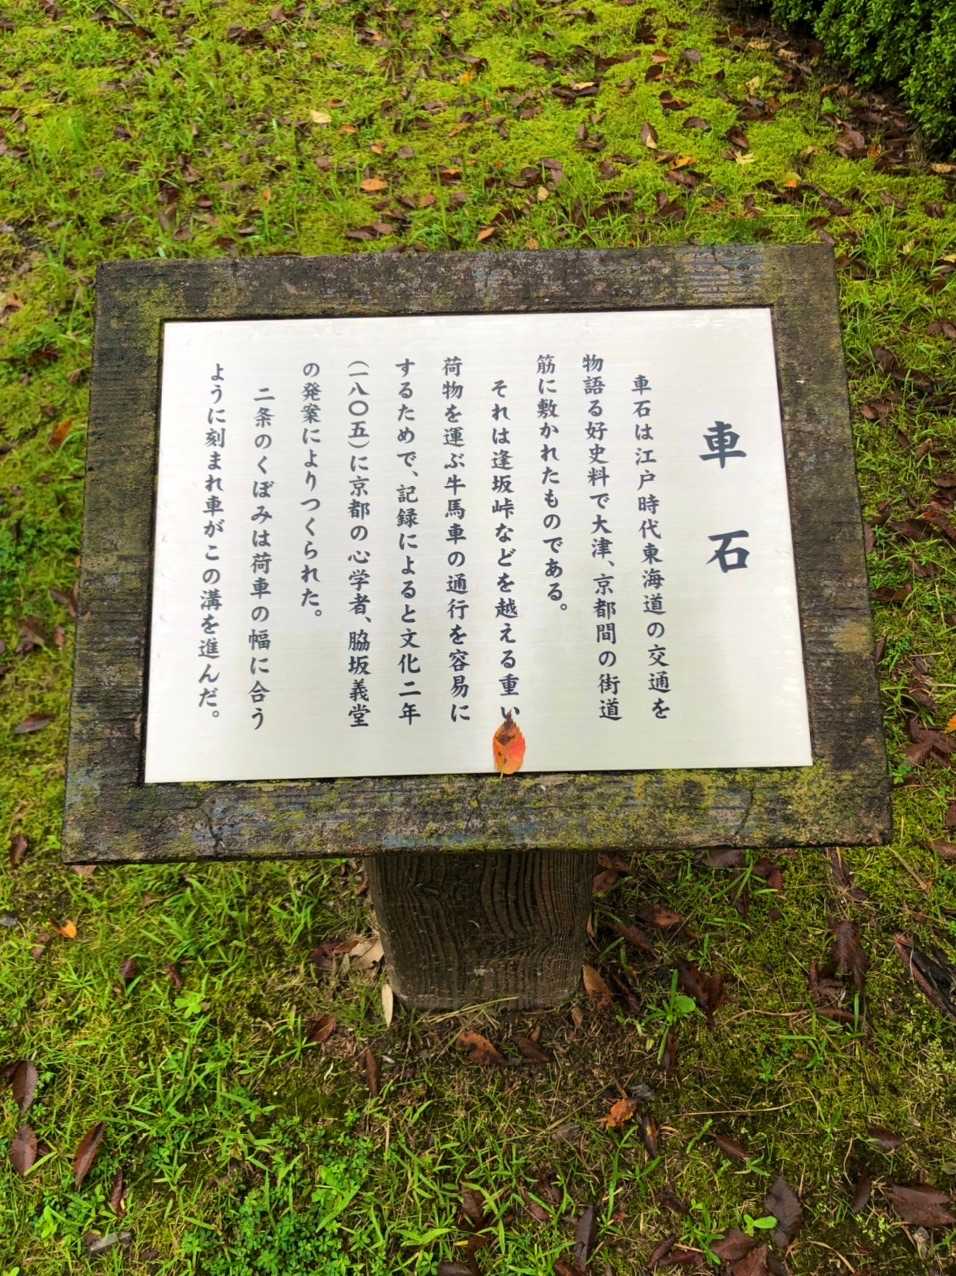 車石
車石は江戸時代東海道の交通を
物語る好史料で大津、京都間の街道
筋に敷かれたものである。
それは逢坂峠などを越える重い
荷物を運ぶ牛馬車の通行を容易に
するためで、記録によると文化二年
(一八〇五)に京都の心学者、脇坂義堂
の発案によりつくられた。
二条のくぼみは荷車の幅に合う
ように刻まれ車がこの溝を進んだ。